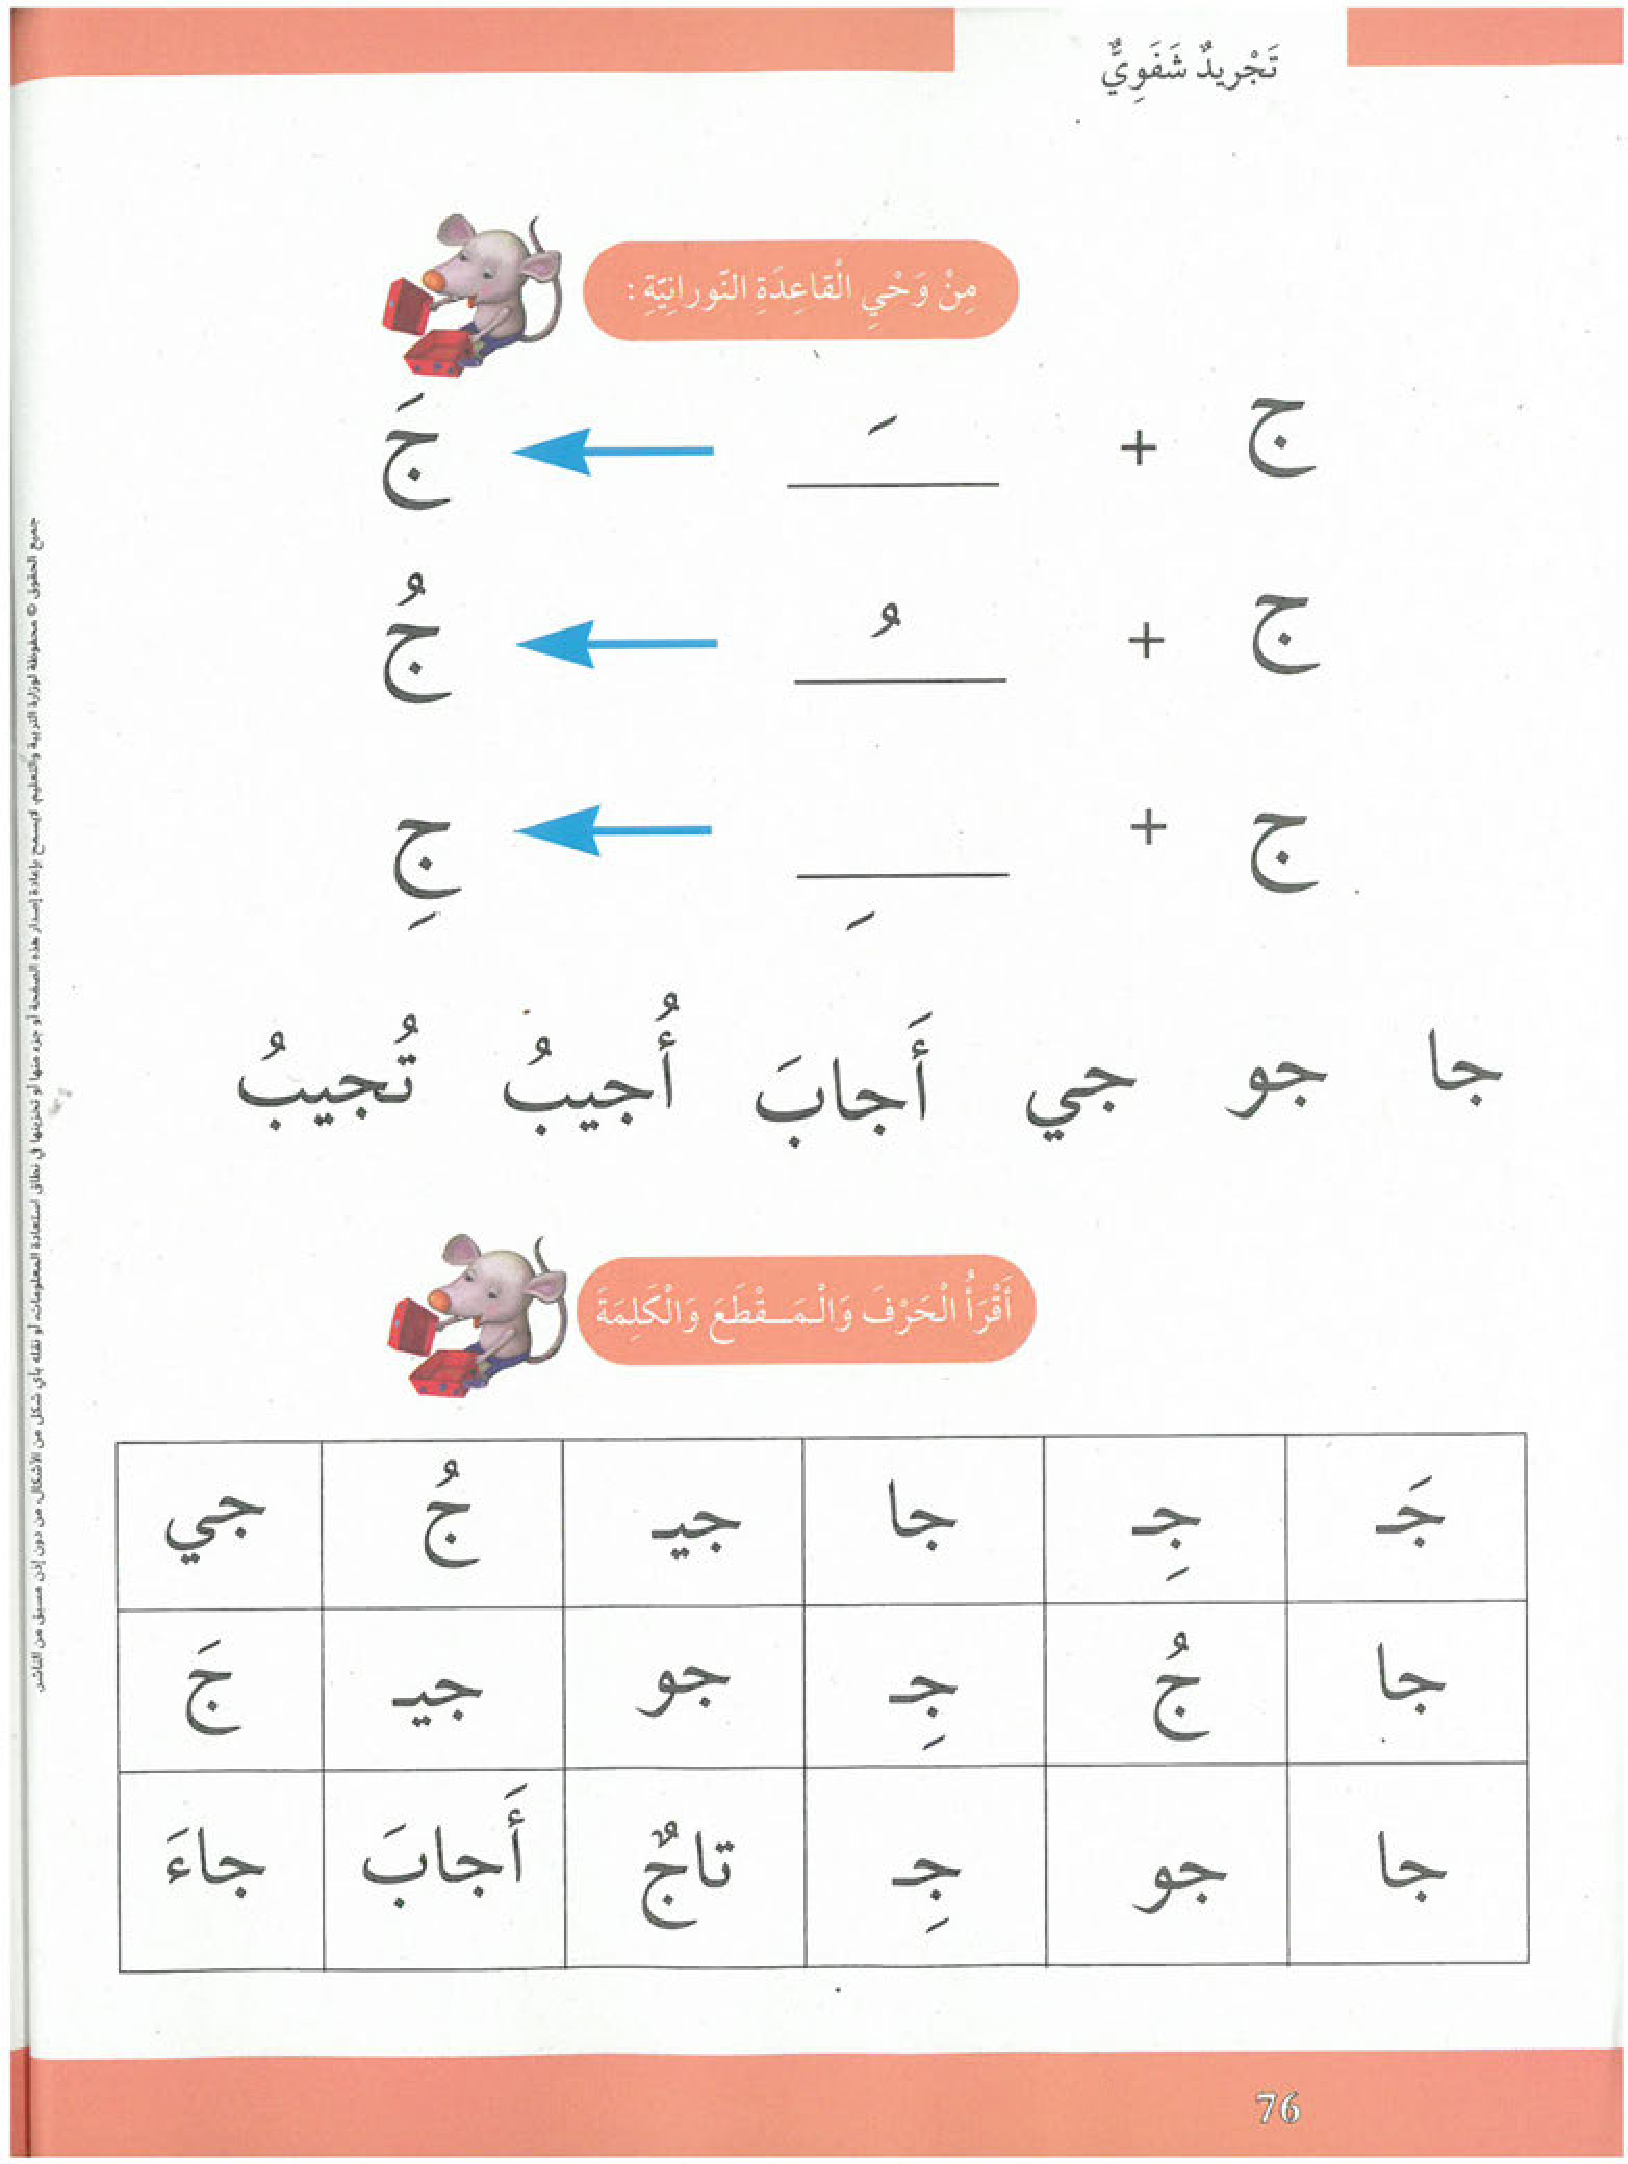 تَجْريدٌ شَفَوِيٌّ
مِنْ وَحْيِ الْقاعِدَةِ النّورانِيّةِ :
ج + ـَ جَ
ج + ـُ جُ
ج + ـِ جِ
جا جو جي أَجابَ أُجيبُ تُجيبُ
أَقْرَأُ الْحَرْفَ وَالْـمَـــقْطَعَ وَالْكَلِمَةَ
جَـ جِـ جا جيـ جُ جي
جا جُ جِـ جو جيـ جَ
جا جو جِـ تاجٌ أَجابَ جاءَ
76
جميع الحقوق © محفوظة لوزارة التربية والتعليم. لايسمح بإعادة إصدار هذه الصفحة أو جزء منها أو تخزينها في نطاق استعادة المعلومات، أو نقله بأي شكل من الأشكال، من دون إذن مسبق من الناشر.